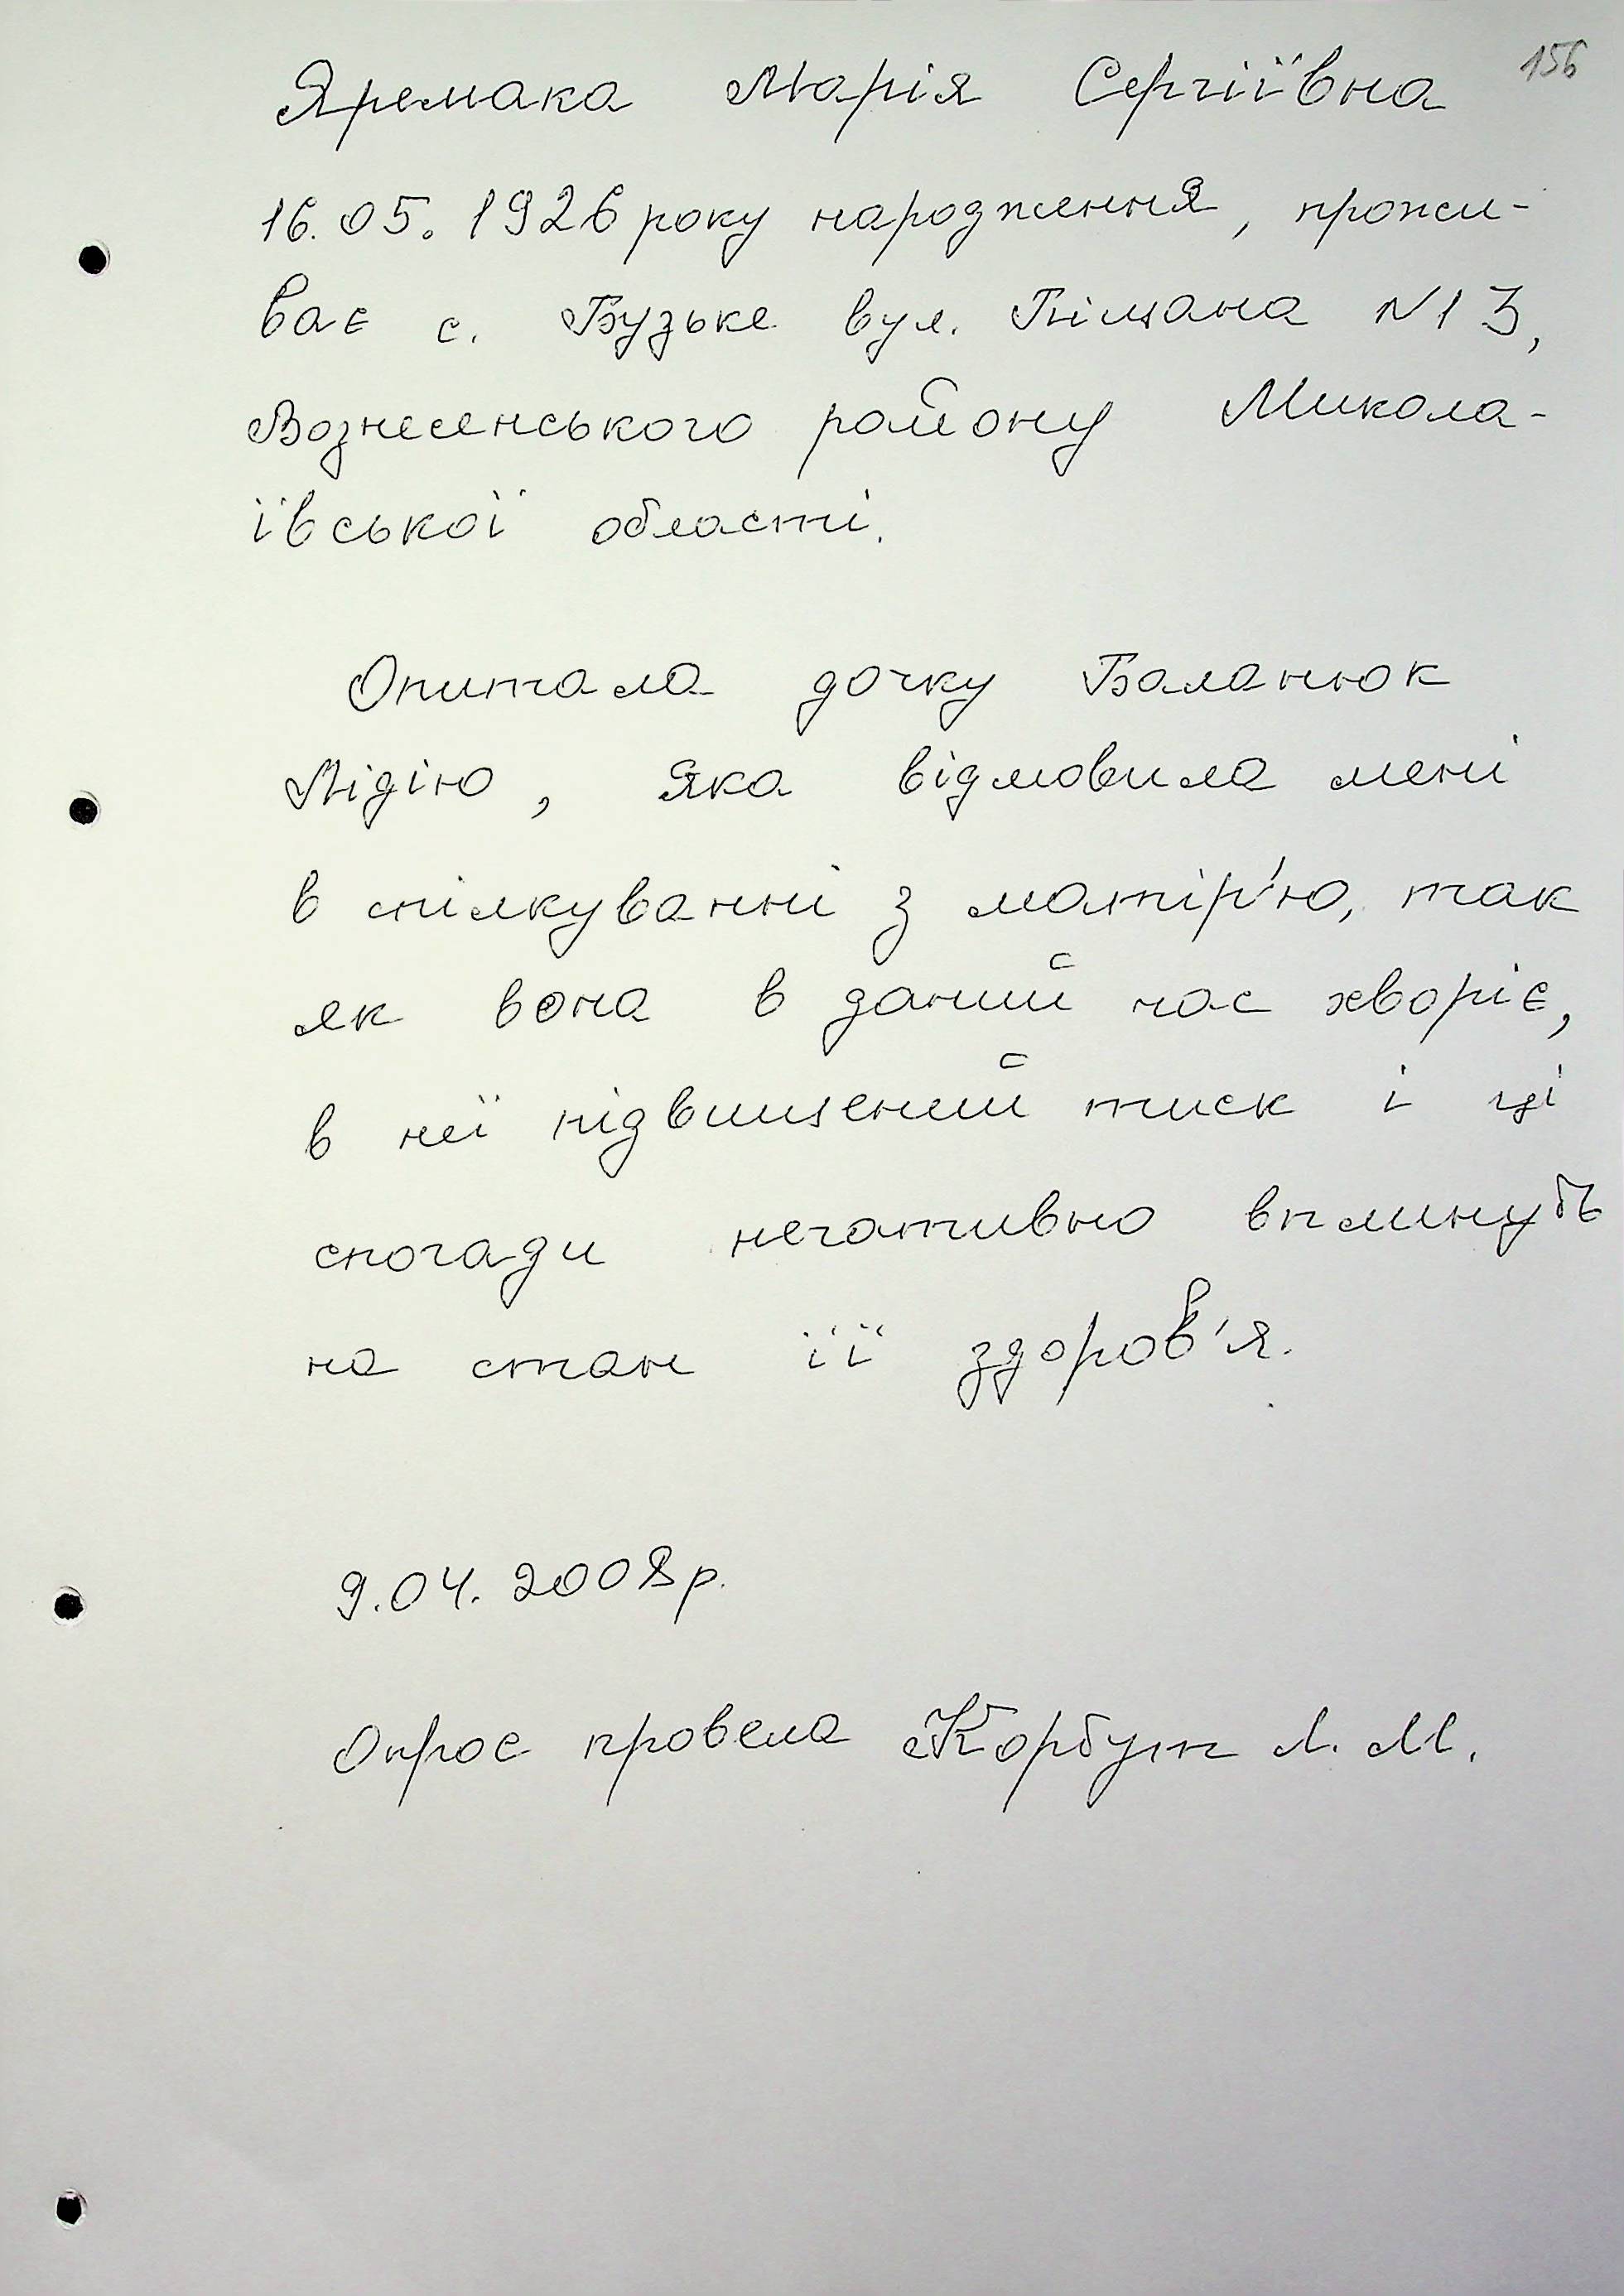 156
Яремака Марія Сергіївна
16.05.1926 року народження, прожи-
ває с. Бузьке вул. N13,
Вознесенського району Микола-
ївської області.
Опитала дочку Баланюк
Лідію, яка відмовила мені
в спілкуванні з матір'ю, так
як вона в даний час хворіє,
в неї підвищений тиск і ці
спогади негативно вплинуть
на стан її здоров'я.
9.04.2008р.
Опрос провела Корбут Л. М.